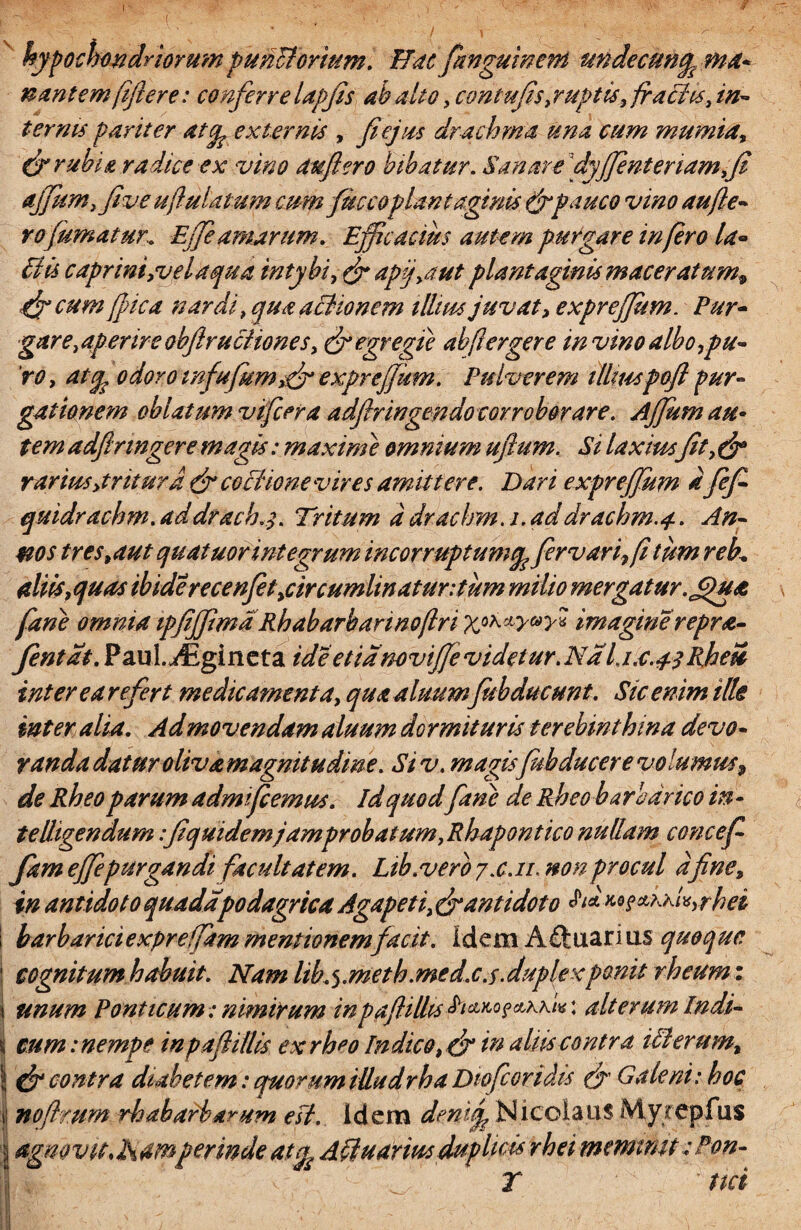 hypochondriorum punctorium. Hac sanguinem undecunq; ma-
nantem sistere: conferre lapsis ab alto, contusis, ruptis, fractis, in-
ternis pariter atq; externis, si ejus drachma una cum mumia,
& rubiæ radice ex vino austero bibatur. Sanare dyssenteriam, si
assum, sive ustulatum cum succo plantaginis & pauco vino auste-
ro sumatur. Esse amarum. Efficacius autem purgare in sero la-
ctis caprini, vel aqua intybi, & apij, aut plantaginis maceratum,
& cum spica nardi, quæ actionem illius juvat, expressum. Pur-
gare, aperire obstructiones, & egregie abstergere in vino albo, pu-
ro, atq; odoro infusum, & expressum. Pulverem illius post pur-
gationem oblatum viscera adstringendo corroborare. Assum au-
tem adstringere magis: maxime omnium ustum. Si laxius sit, &
rarius, tritura & coctione vires amittere. Dari expressum à ses-
quidrachm. ad drach. 3. Tritum à drachm. 1. ad drachm. 4. An-
nos tres, aut quatuor integrum incorruptumq; servari, si tum reb.
aliis, quas ibidē recenset, circumlinatur: tum milio mergatur. Quæ
sane omnia ipsissimā Rhabarbari nostri χολαγωγȣ imaginē repræ-
sentāt. Paul. Ægineta idē etiā novisse videtur. Nā l. 1. c. 43 Rheū
inter ea refert medicamenta, quæ aluum subducunt. Sic enim ille
inter alia. Ad movendam aluum dormituris terebinthina devo-
randa datur olivæ magnitudine. Si v. magis subducere volumus,
de Rheo parum admiscemus. Id quod sane de Rheo barbarico in-
telligendum: siquidem jam probatum, Rhapontico nullam conces-
sam esse purgandi facultatem. Lib. vero 7. c. 11. non procul à fine,
in antidoto quadā podagrica Agapeti, & antidoto διὰ κοραλλίȣ, rhei
barbarici expressam mentionem facit. Idem Actuarius quoque
cognitum habuit. Nam lib. 5. meth. med. c. s. duplex ponit rheum:
unum Ponticum: nimirum in pastillis διακοραλλίȣ: alterum Indi-
cum: nempe in pastillis ex rheo Indico, & in aliis contra icterum,
& contra diabetem: quorum illud rha Dioscoridis & Galeni: hoc
nostrum rhabarbarum est. Idem deniq; Nicolaus Myrepsus
agnovit. Nam perinde atq; Actuarius duplicis rhei meminit: Pon-
T tici